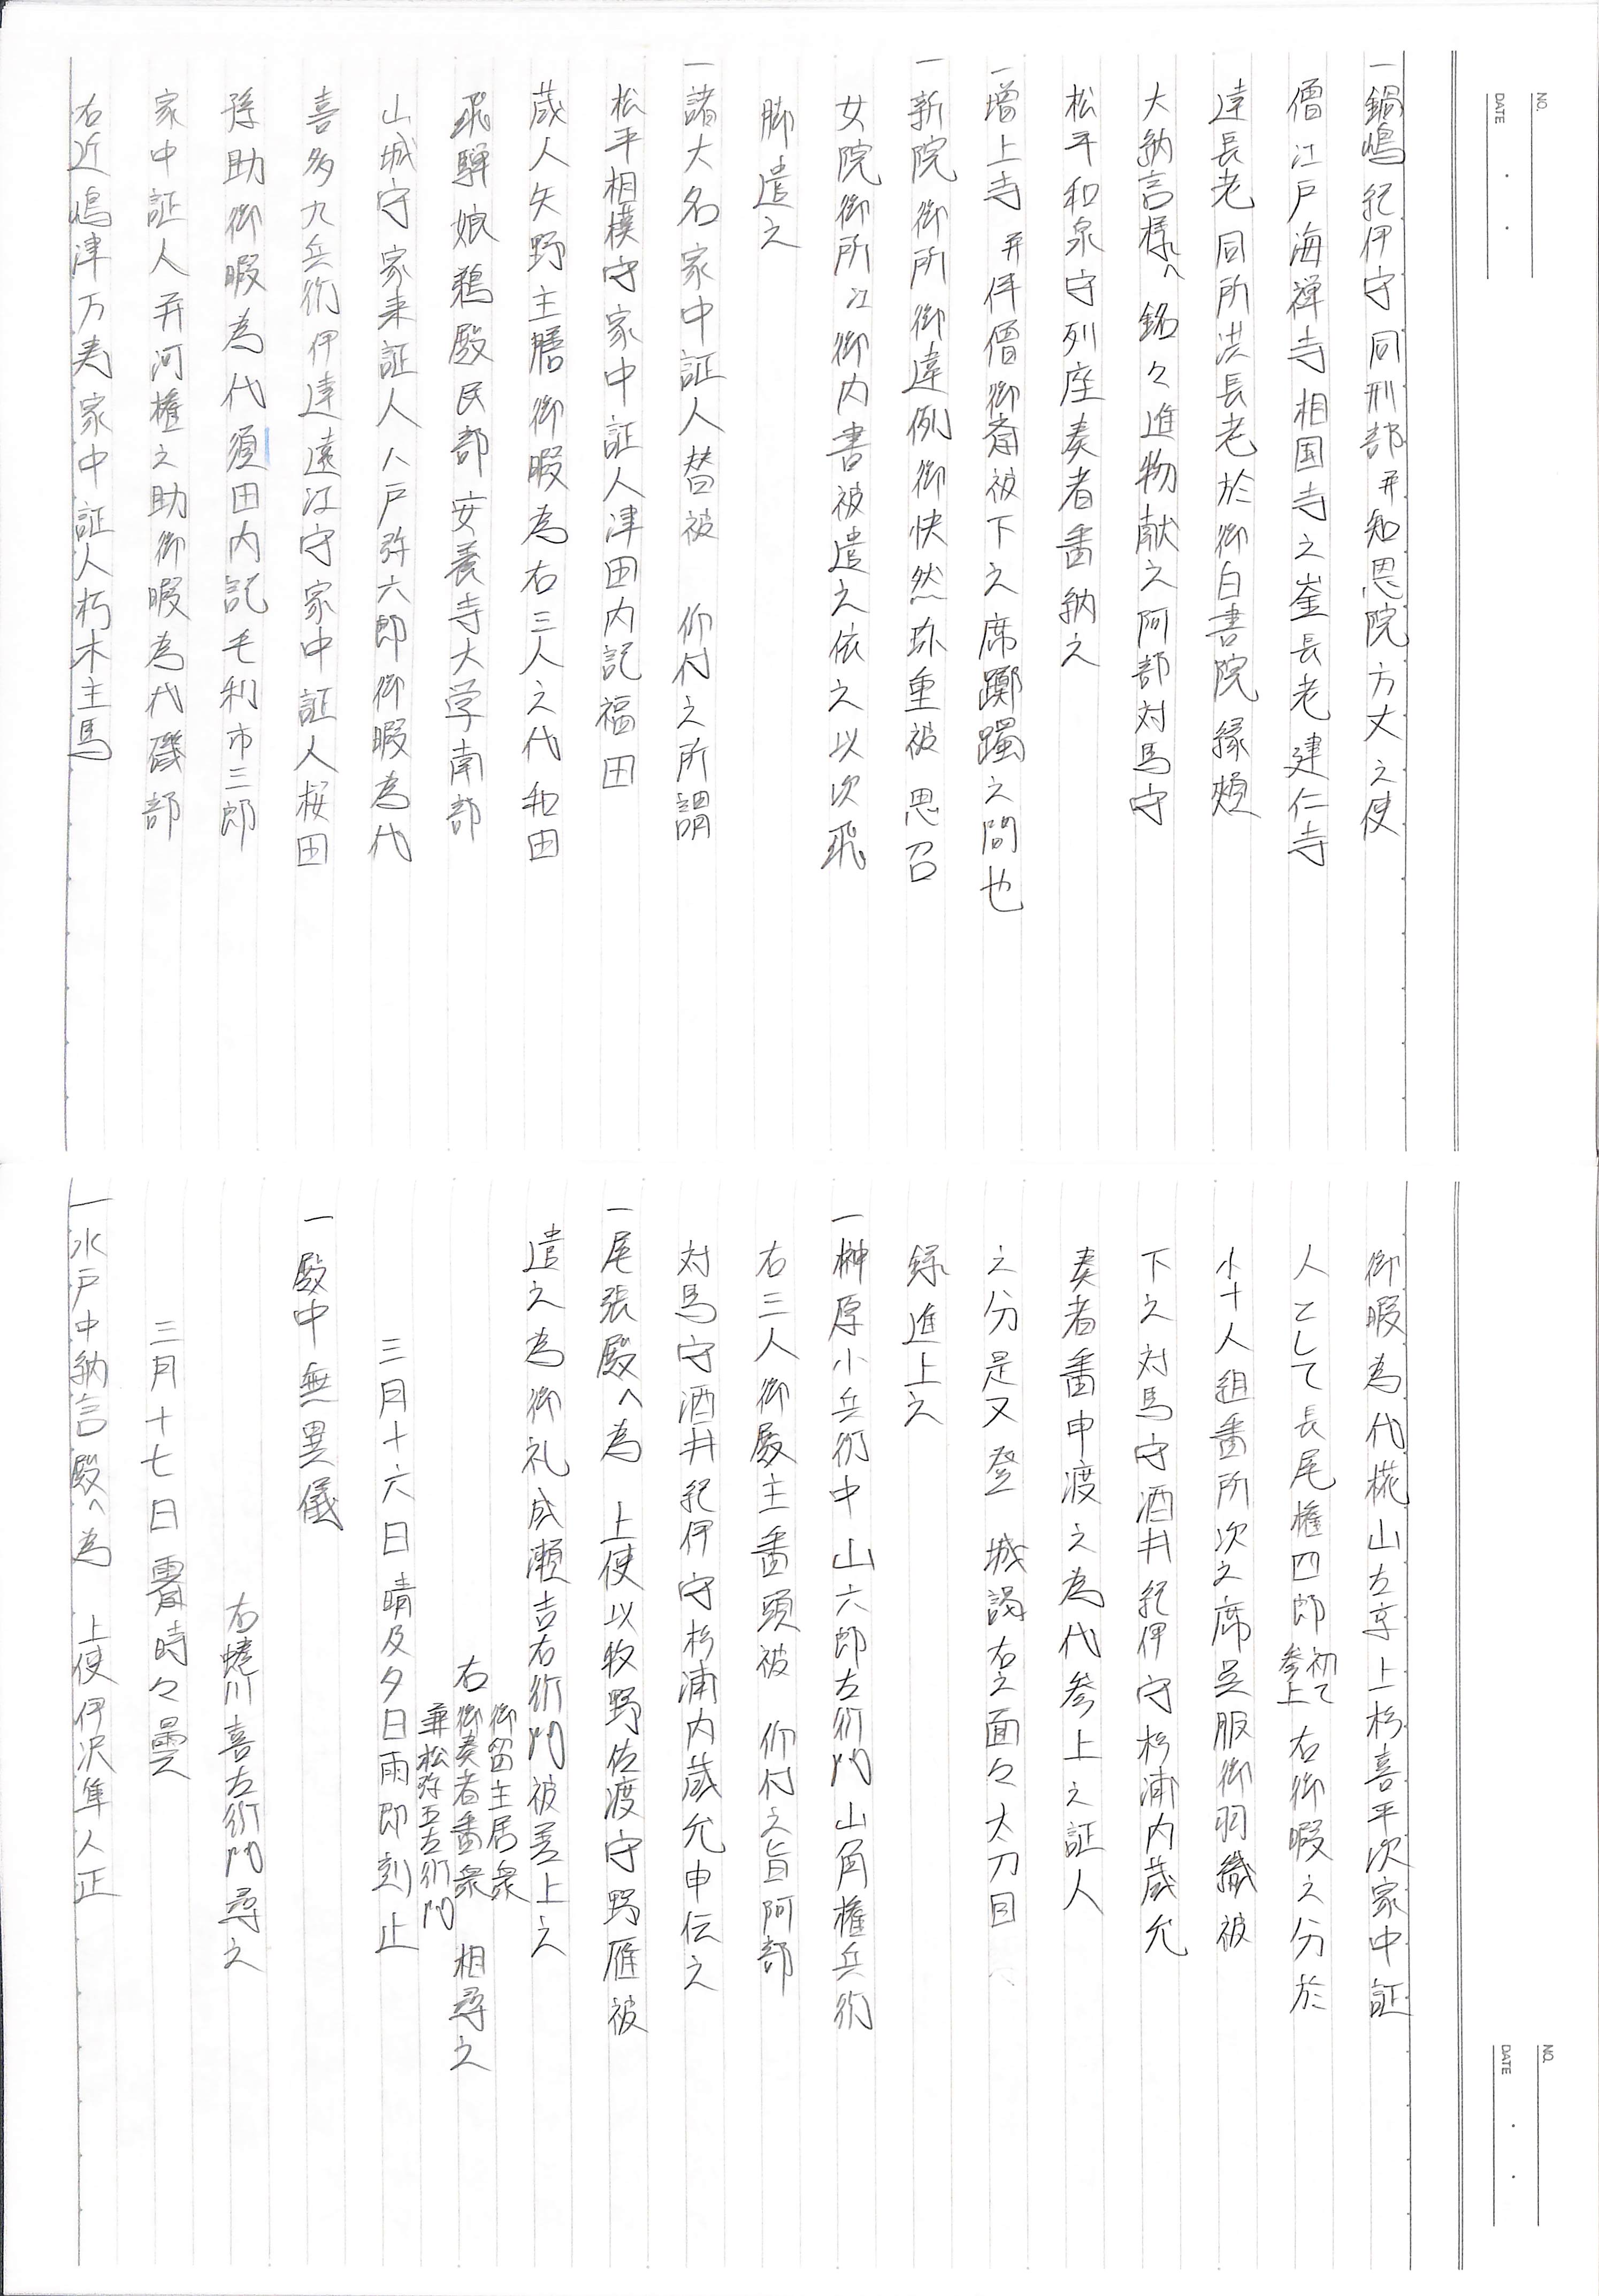 NO.
DATE
一鍋嶋紀伊守同刑部并知恩院方丈之使
僧江戸海禅寺相国寺之崟長老建仁寺
達長老同所洪長老於御白書院縁頬
大納言様へ銘々進物献之阿部対馬守
松平和泉守列座奏者番納之
一増上寺并伴僧御斎被下之席躑躅之間也
一新院御所御違例御快然珎重被思召
女院御所江御内書被遣之依之以次飛
脚遣之
一諸大名家中証人替被 仰付之所謂
松平相模守家中証人津田内記福田
蔵人矢野主膳御暇為右三人之代和田
飛騨娘鵜殿民部安養寺大学南部
山城守家来証人八戸弥六郎御暇為代
喜多九兵衛伊達遠江守家中証人桜田
孫助御暇為代須田内記毛利市三郎
家中証人并河権之助御暇為代磯部
右近嶋津万寿家中証人朽木主馬
NO.
DATE
御暇為代椛山左京上杉喜平次家中証
人乙して長尾権四郎初て参上右御暇之分於
小十人組番所次之席呉服御羽織被
下之対馬守酒井紀伊守杉浦内蔵允
奏者番申渡之為代参上之証人
之分是又登 城謁右之面々太刀目
録進上之
一榊原小兵衛中山六郎左衛門山角権兵衛
右三人御殿主番頭被 仰付之旨阿部
対馬守酒井紀伊守杉浦内蔵允申伝之
一尾張殿へ為 上使以牧野佐渡守野雁被
遣之為御礼成瀬吉右衛門被差上之
右 御留主居衆 御奏者番衆 兼松弥五左衛門 相尋之
三月十六日晴及夕日雨即刻止
一殿中無異儀
右蜷川喜左衛門尋之
三月十七日霽時々曇
一水戸中納言殿へ為 上使伊沢隼人正